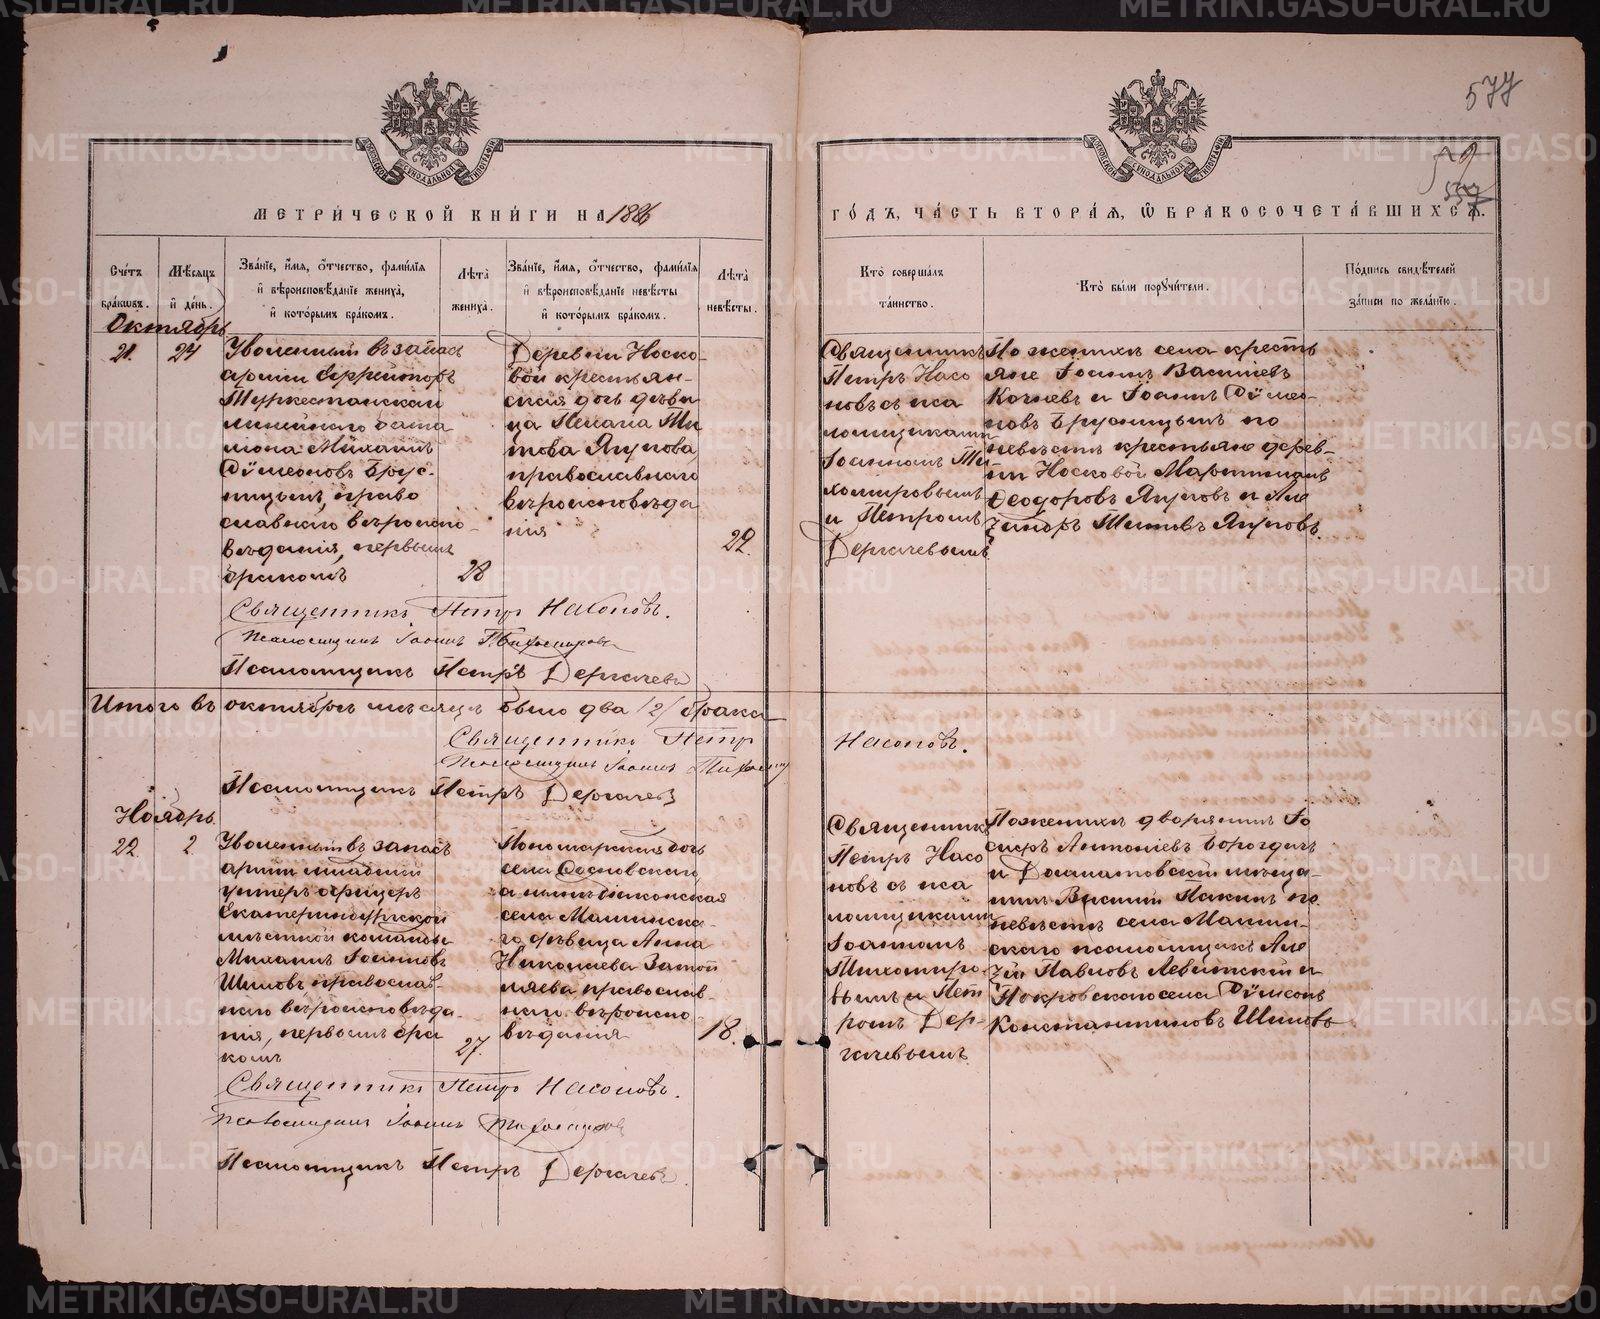 577
59
557
МЕТРИ́ЧЕСКОЙ КНИ́ГИ НА 1886
ГО́ДЪ, ЧА́СТЬ ВТОРА́Я, Ѡ БРАКОСОЧЕТА́ВШИХСЯ.
Сче́тъ бра́кѡвъ.
Мѣ́сяцъ и де́нь.
Зва́нїе, и́мя, о́тчество, фами́лїя и вѣроисповѣ́данїе жениха̀, и кото́рымъ бра́комъ.
Лѣта̀ жениха̀.
Зва́нїе, и́мя, о́тчество, фами́лїя и вѣроисповѣ́данїе невѣ́сты и кото́рымъ бра́комъ.
Лѣта̀ невѣ́сты.
Кто̀ соверша́лъ та́инство.
Кто̀ бы́ли порꙋчи́тели.
По́дпись свидѣ́телей за́писи по жела́нїю.
Октябрь
21.
24
Уволенный въ запасъ
арміи Ефрейторъ
Туркестанскаго
линейнаго бата
ліона Михаилъ
Сѵмеоновъ Брус-
ницынъ, право
славнаго вѣроиспо-
вѣданія, первымъ
бракомъ
28
Деревни Носко-
вой крестьян-
ская дочь дѣви
ца Пелагія Ти
това Япулова
православнаго
вѣроисповѣда
нія
22.
Священникъ
Петръ Насо
новъ съ пса
ломщиками
Іоанномъ Ти
хомировымъ
и Петромъ
Дергачевымъ
По женихѣ села кресть
яне Іоаннъ Васильевъ
Кочневъ и Іоаннъ Сѵмео-
новъ Брусницынъ по
невѣстѣ крестьяне дерев-
ни Носковой Мартиніанъ
Ѳеодоровъ Япуловъ и Але
ѯандръ Титовъ Япуловъ.
Священникъ Петръ Насоновъ.
Псаломщикъ Іоаннъ Тихомировъ
Псаломщикъ Петръ Дергачевъ
Итого въ октябрѣ мѣсяцѣ было два /2/ брака
Священникъ Петръ Насоновъ.
Псаломщикъ Іоаннъ Тихомир
Псаломщикъ Петръ Дергачевъ
Ноябрь
22.
2.
Уволенный въ запасъ
арміи младшій
унтеръ офицеръ
Екатеринбургской
мѣстной команды
Михаилъ Іоанновъ
Шиловъ православ-
наго вѣроисповѣда-
нія, первымъ бра
комъ
27.
Пономарская дочь
села Сосновскаго,
а нынѣ діаконская
села Маминска-
го дѣвица Анна
Николаева
православ-
наго вѣроиспо-
вѣданія
18.
Священникъ
Петръ Насо
новъ съ пса
ломщиками
Іоанномъ
Тихомиро-
вымъ и Пет
ромъ Дер-
гачевымъ
По женихѣ дворянинъ Іо
сифъ Антоніевъ
и Долматовскій мѣща-
нинъ Василій по
невѣстѣ села Мамин-
скаго псаломщикъ Але
ѯій Павловъ Левитскій и
Покровскаго села Сѵмеонъ
Константиновъ Шиловъ
Священникъ Петръ Насоновъ.
Псаломщикъ Іоаннъ Тихомировъ
Псаломщикъ Петръ Дергачевъ.